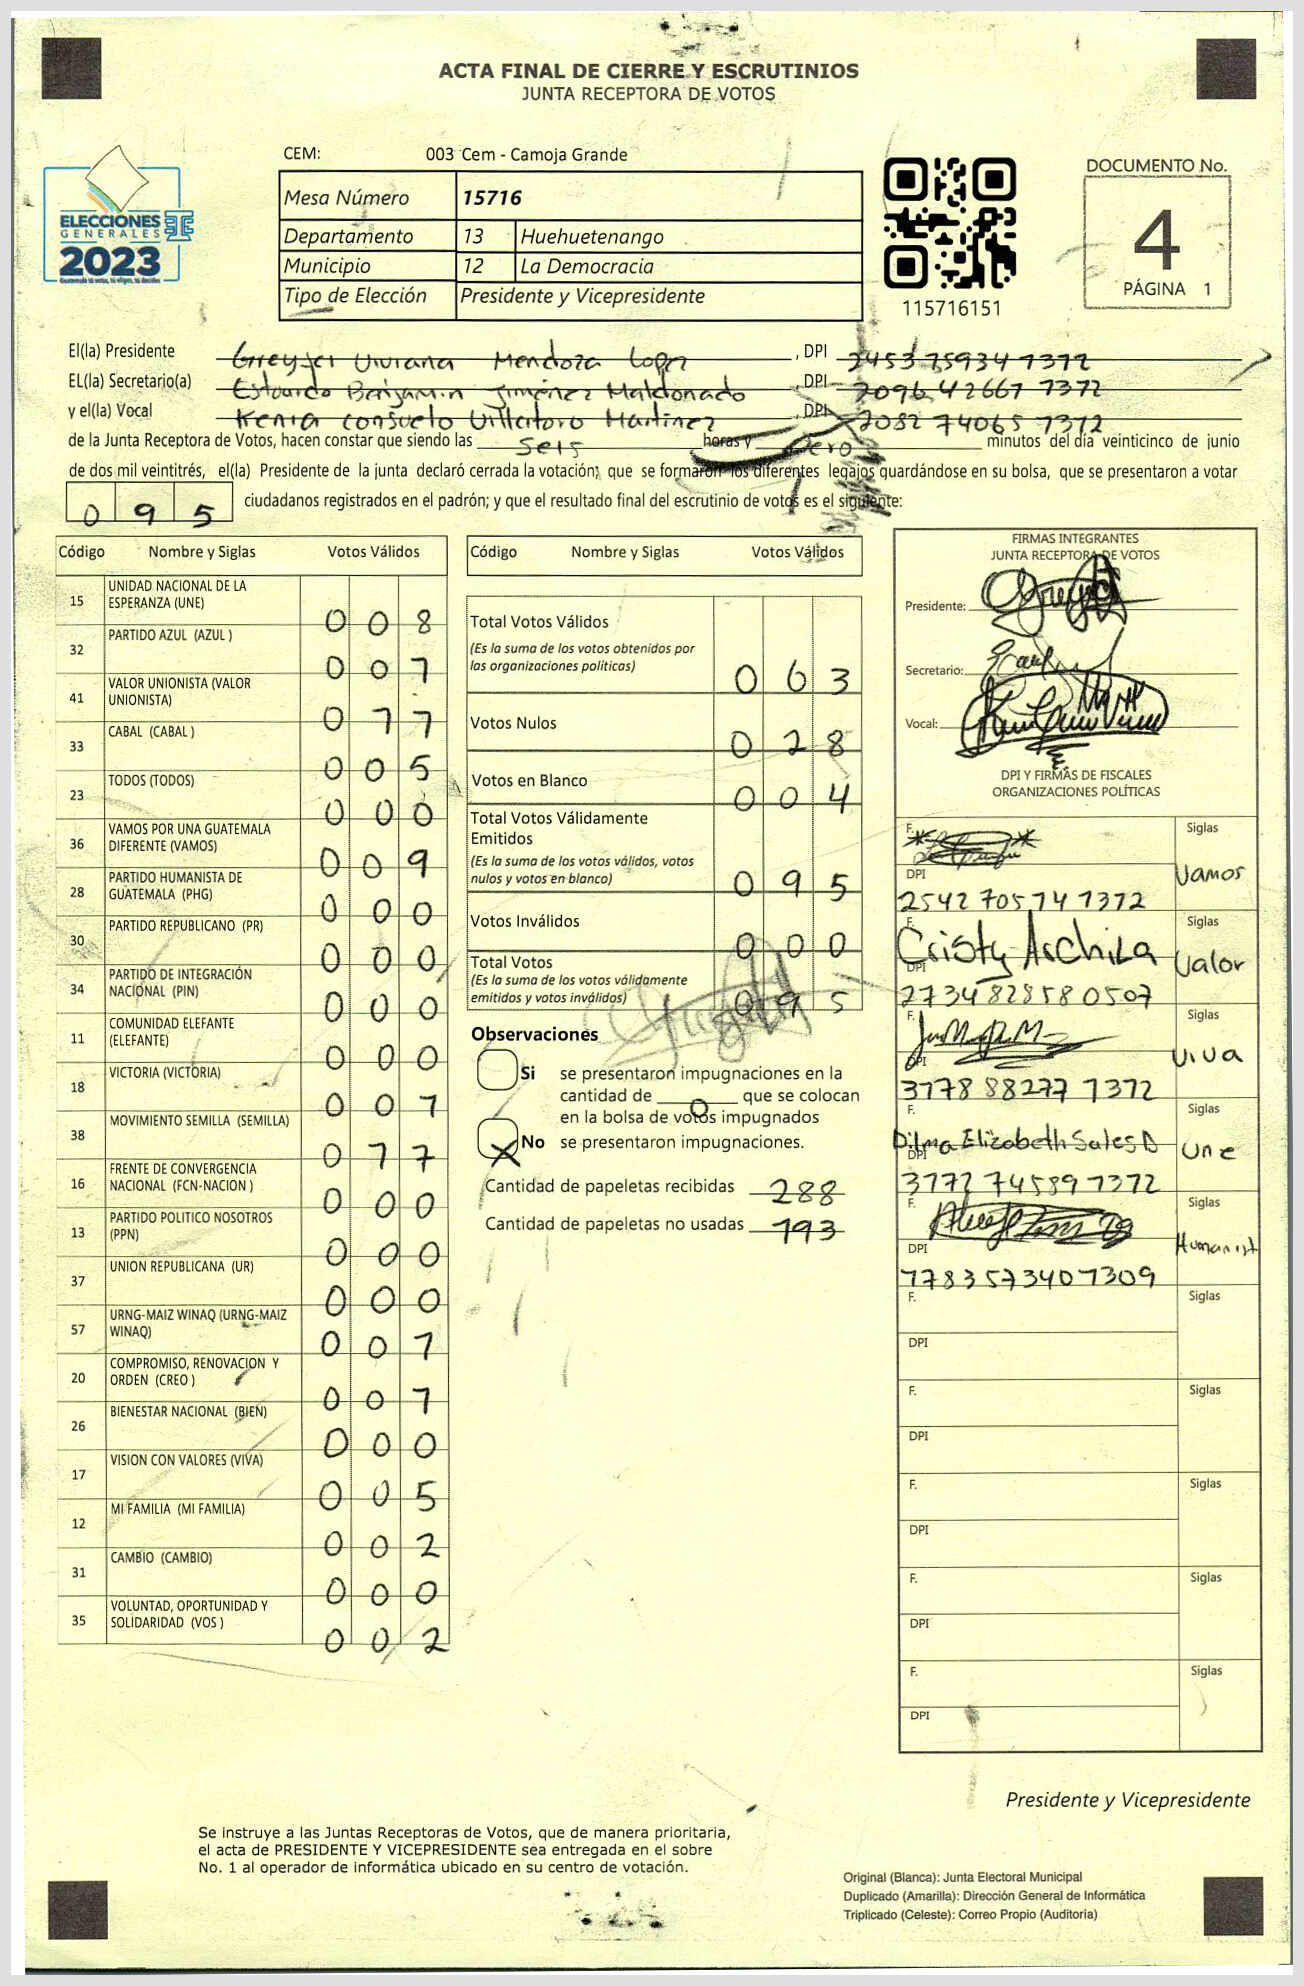 ACTA FINAL DE CIERRE Y ESCRUTINIOS
JUNTA RECEPTORA DE VOTOS
CEM: 003 Cem - Camoja Grande
ELECCIONES
GENERALES
2023
Mesa Número 15716
Departamento 13 Huehuetenango
Municipio 12 La Democracia
Tipo de Elección Presidente y Vicepresidente
115716151
DOCUMENTO No.
4
PÁGINA 1
El(la) Presidente Viviana Mendoza Lopez , DPI 2453 15934 1312
EL(la) Secretario(a) Estuardo Benjamin Jiménez Maldonado , DPI 2096 42667 1312
y el(la) Vocal Kenia Consuelo Villatoro Martinez , DPI 2082 74065 1312
de la Junta Receptora de Votos, hacen constar que siendo las seis horas y cero minutos del día veinticinco de junio
de dos mil veintitrés, el(la) Presidente de la junta declaró cerrada la votación; que se formaron los diferentes legajos guardándose en su bolsa, que se presentaron a votar
095 ciudadanos registrados en el padrón; y que el resultado final del escrutinio de votos es el siguiente:
Código Nombre y Siglas Votos Válidos
15 UNIDAD NACIONAL DE LA
ESPERANZA (UNE) 008
32 PARTIDO AZUL (AZUL ) 007
41 VALOR UNIONISTA (VALOR
UNIONISTA) 011
33 CABAL (CABAL ) 005
23 TODOS (TODOS) 000
36 VAMOS POR UNA GUATEMALA
DIFERENTE (VAMOS) 009
28 PARTIDO HUMANISTA DE
GUATEMALA (PHG) 000
30 PARTIDO REPUBLICANO (PR) 000
34 PARTIDO DE INTEGRACIÓN
NACIONAL (PIN) 000
11 COMUNIDAD ELEFANTE
(ELEFANTE) 000
18 VICTORIA (VICTORIA) 001
38 MOVIMIENTO SEMILLA (SEMILLA) 011
16 FRENTE DE CONVERGENCIA
NACIONAL (FCN-NACION ) 000
13 PARTIDO POLITICO NOSOTROS
(PPN) 000
37 UNION REPUBLICANA (UR) 000
57 URNG-MAIZ WINAQ (URNG-MAIZ
WINAQ) 001
20 COMPROMISO, RENOVACION Y
ORDEN (CREO ) 001
26 BIENESTAR NACIONAL (BIEN) 000
17 VISION CON VALORES (VIVA) 005
12 MI FAMILIA (MI FAMILIA) 002
31 CAMBIO (CAMBIO) 000
35 VOLUNTAD, OPORTUNIDAD Y
SOLIDARIDAD (VOS ) 002
Código Nombre y Siglas Votos Válidos
Total Votos Válidos
(Es la suma de los votos obtenidos por
las organizaciones políticas) 063
Votos Nulos 028
Votos en Blanco 004
Total Votos Válidamente
Emitidos
(Es la suma de los votos válidos, votos
nulos y votos en blanco) 095
Votos Inválidos 000
Total Votos
(Es la suma de los votos válidamente
emitidos y votos inválidos) 095
Observaciones
Si se presentaron impugnaciones en la
cantidad de 0 que se colocan
en la bolsa de votos impugnados
X No se presentaron impugnaciones.
Cantidad de papeletas recibidas 288
Cantidad de papeletas no usadas 193
FIRMAS INTEGRANTES
JUNTA RECEPTORA DE VOTOS
Presidente:
Secretario:
Vocal:
DPI Y FIRMAS DE FISCALES
ORGANIZACIONES POLÍTICAS
F. Siglas
DPI Vamos
2542 70574 1312
F. Cristy Archila Siglas
DPI Valor
2734 82858 0507
F. Siglas
DPI Viva
3178 88277 1312
F. Dilma Elizabeth Sales D Siglas
DPI Une
3172 74589 1312
F. Siglas
DPI Humanist
1783 57340 1309
F. Siglas
DPI
F. Siglas
DPI
F. Siglas
DPI
F. Siglas
DPI
F. Siglas
DPI
Presidente y Vicepresidente
Se instruye a las Juntas Receptoras de Votos, que de manera prioritaria,
el acta de PRESIDENTE Y VICEPRESIDENTE sea entregada en el sobre
No. 1 al operador de informática ubicado en su centro de votación.
Original (Blanca): Junta Electoral Municipal
Duplicado (Amarilla): Dirección General de Informática
Triplicado (Celeste): Correo Propio (Auditoria)